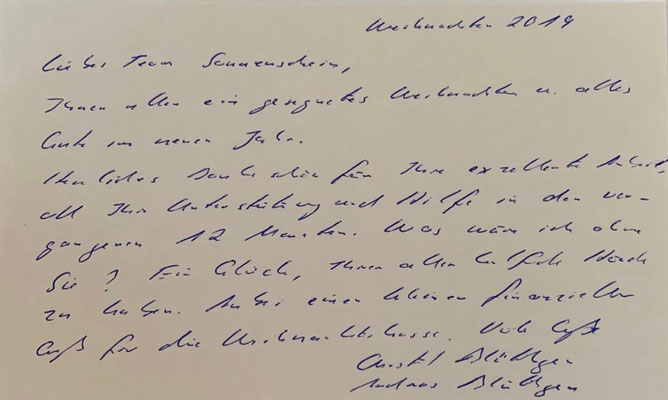 Weihnachten 2019
Liebes Team Sonnenschein,
Ihnen allen ein gesegnetes Weihnachten u. alles
Gute im neuen Jahr.
Herzliches Dankeschön für Ihre exzellente Arbeit,
all Ihre Unterstützung und Hilfe in den ver-
gangenen 12 Monaten. Was wäre ich ohne
Sie? Ein Glück, Ihrer aller helfende Hände
zu haben. Anbei einen kleinen finanziellen
Gruß für die Weihnachtskasse. Viele Grüße
Christel Blüthgen
Andreas Blüthgen